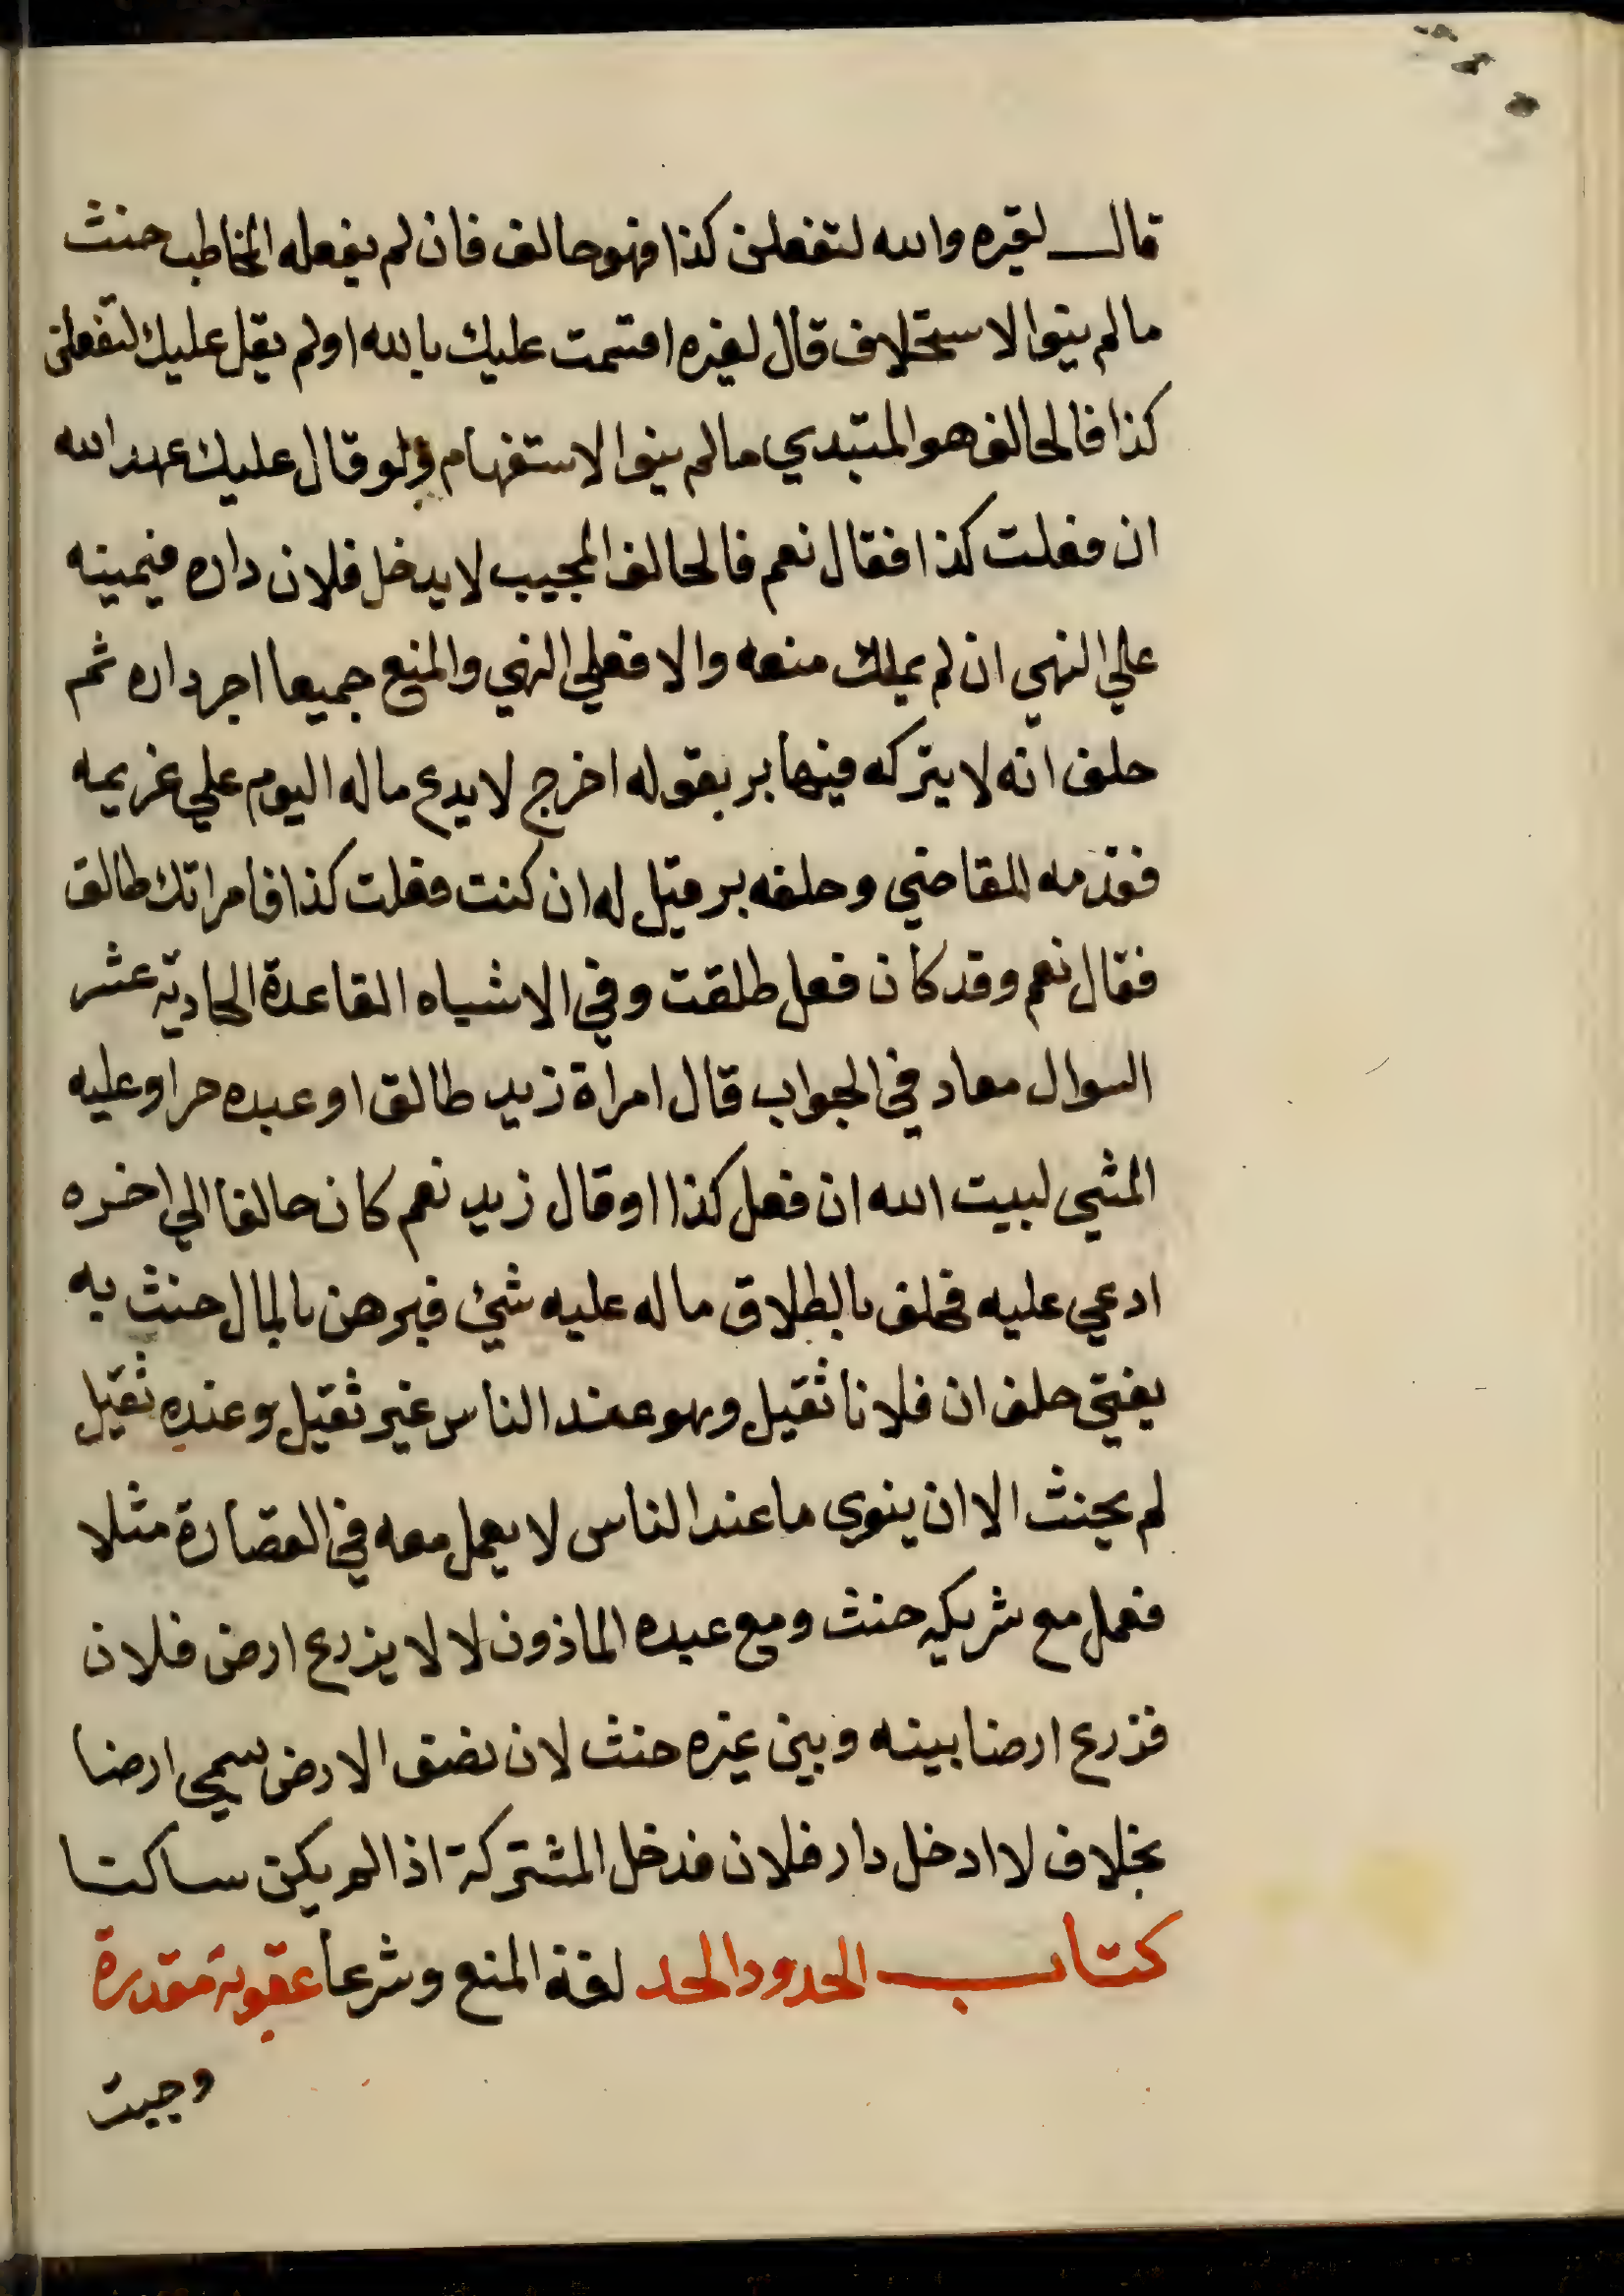 قال لغيره والله لتفعلن كذا فهو حالف فان لم يفعله المخاطب حنث
مالم ينوا الاستحلاف قال لغيره اقسمت عليك بالله اولم يقل عليك لتفعلن
كذا فالحالف هو المبتدي مالم ينوا الاستفهام ولو قال عليك عهد الله
ان فعلت كذا فقال نعم فالحالف المجيب لا يدخل فلان داره فيمينه
علي النهي ان لم يملك منعه والا فعلي النهي والمنع جميعا اجر داره ثم
حلف انه لا يتركه فيها بر بقوله اخرج لا يدع ماله اليوم علي غريمه
فقدمه للقاضي وحلفه بر قيل له ان كنت فعلت كذا فامراتك طالق
فقال نعم وقد كان فعل طلقت وفي الاشباه القاعدة الحادية عشر
السوال معاد في الجواب قال امراة زيد طالق او عبده حر او عليه
المشي لبيت الله ان فعل كذا اوقال زيد نعم كان حالفا الي اخره
ادعي عليه فحلف بالطلاق ماله عليه شئ فبرهن بالمال حنث به
يفتي حلف ان فلانا ثقيل وهو عند الناس غير ثقيل وعنده ثقيل
لم يحنث الا ان ينوي ما عند الناس لا يعمل معه في القصارة مثلا
فعمل مع شريكه حنث ومع عبده الماذون لا لا يزرع ارض فلان
فزرع ارضا بينه وبين غيره حنث لان نصف الارض يسمي ارضا
بخلاف لا ادخل دار فلان فدخل المشتركة اذا لم يكن ساكنا
كتاب الحدود الحد لغة المنع وشرعا عقوبة مقدرة
وجبت